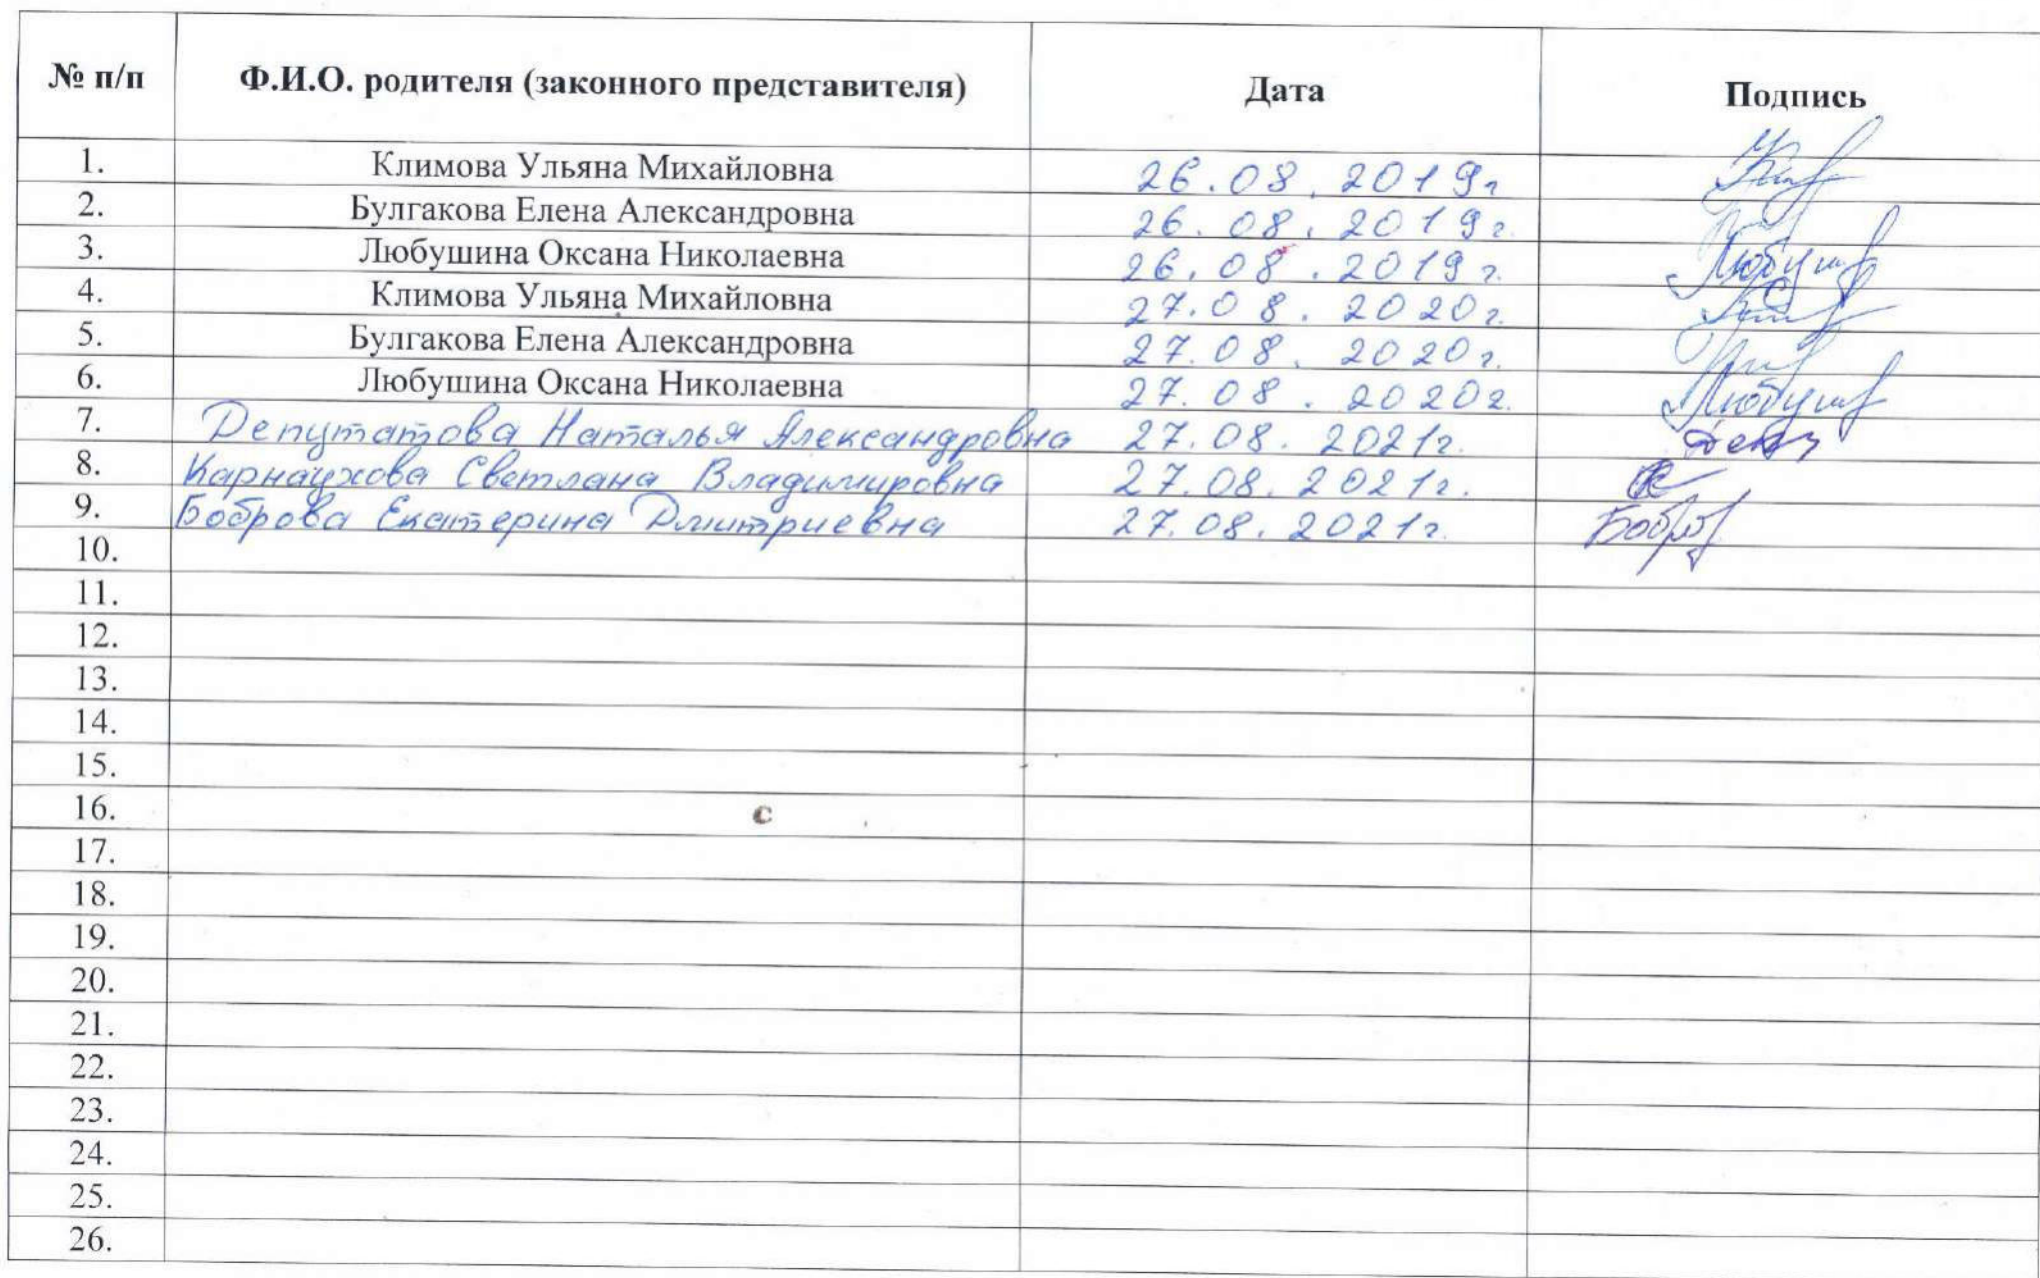 № п/п Ф.И.О. родителя (законного представителя) Дата Подпись
1. Климова Ульяна Михайловна 26.08.2019г
2. Булгакова Елена Александровна 26.08.2019г.
3. Любушина Оксана Николаевна 26.08.2019г. Любуш
4. Климова Ульяна Михайловна 27.08.2020г.
5. Булгакова Елена Александровна 27.08.2020г.
6. Любушина Оксана Николаевна 27.08.2020г. Любуш
7. Депутатова Наталья Александровна 27.08.2021г. Деп
8. Карнаухова Светлана Владимировна 27.08.2021г.
9. Боброва Екатерина Дмитриевна 27.08.2021г. Бобр
10.
11.
12.
13.
14.
15.
16. с
17.
18.
19.
20.
21.
22.
23.
24.
25.
26.